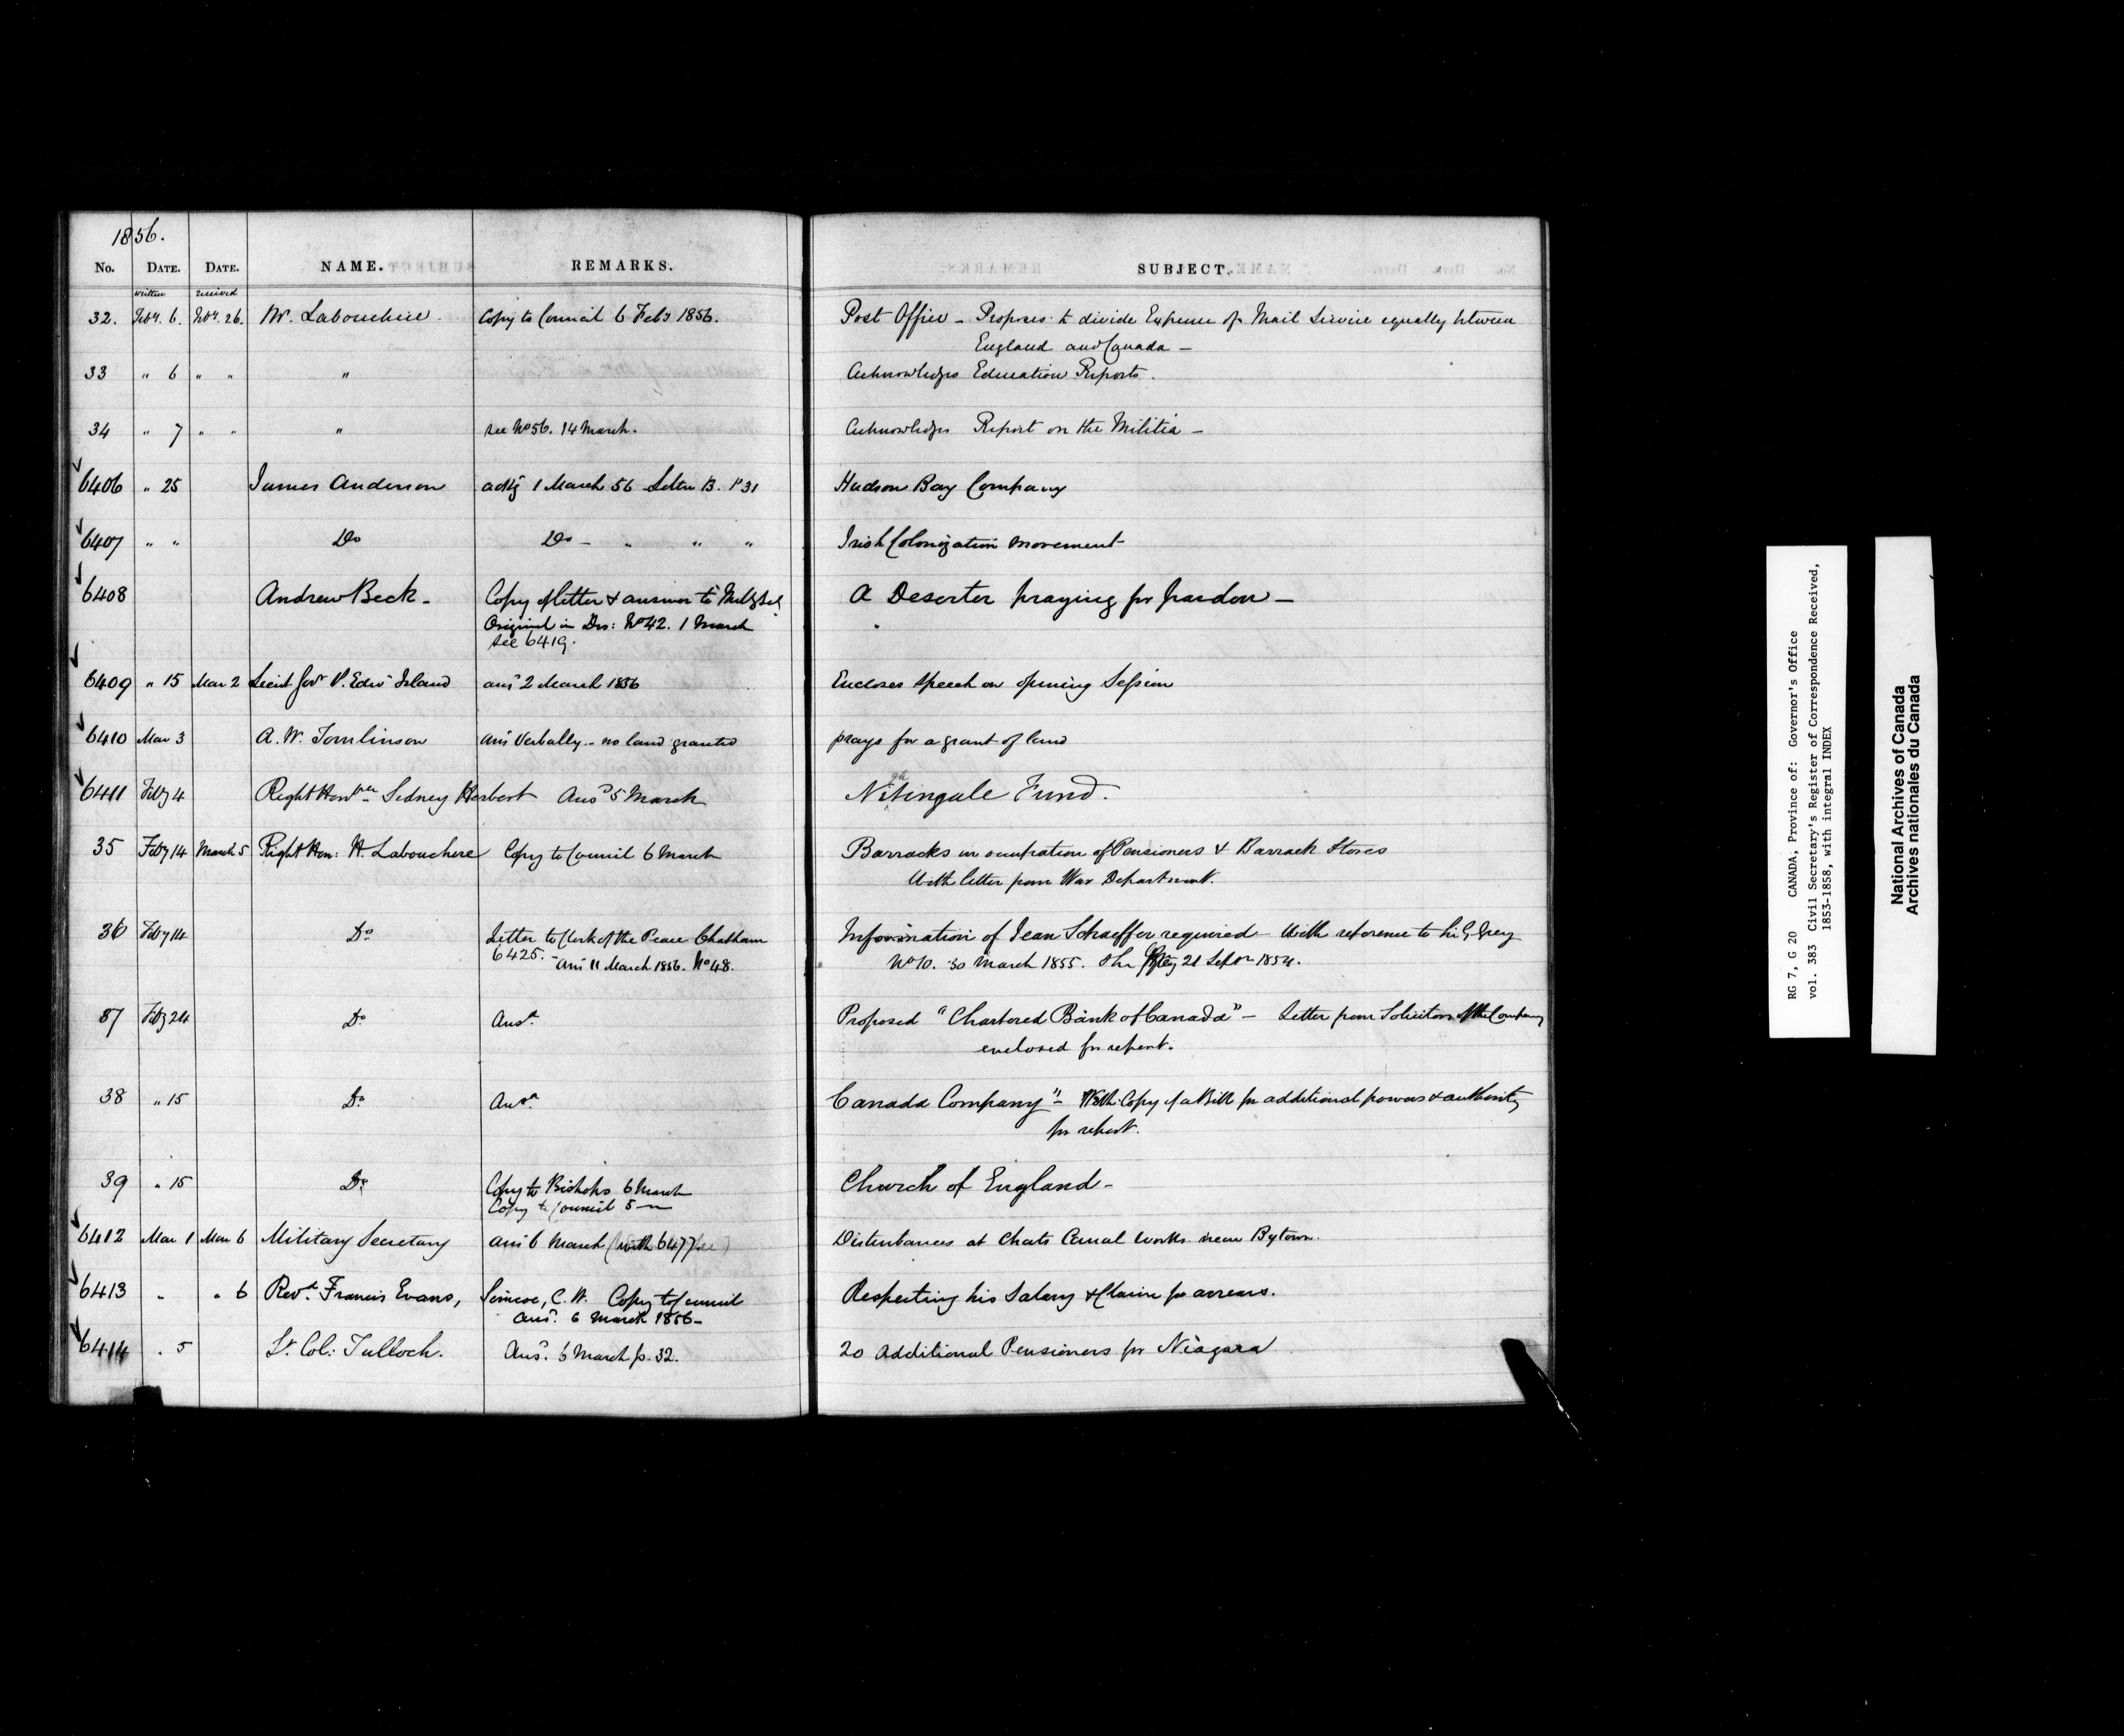 1856.
No. DATE. DATE. NAME. REMARKS. SUBJECT.
written received
32. Feby. 6. Feby. 26. Mr. Labouchere Copy to Council 6 Feby 1856. Post Office - Proposes to divide Expense of Mail Service equally between
England and Canada -
33 " 6 " " " Acknowledges Education Reports.
34 " 7 " " " see No 56. 14 March. Acknowledges Report on the Militia -
6406 " 25 James Anderson 1 March 56 Letter B. P 31 Hudson Bay Company
6407 " " Do Do - " " " Irish Colonization movement
6408 Andrew Beck - Copy of letter & answer to A Deserter praying for pardon -
Original in Des: No 42. 1 March
see 6419.
6409 " 15 Mar 2 Lieut Govr P. Edwd Island ansd 2 March 1856 Encloses Speech on opening Session
6410 Mar 3 A. W. Tomlinson ansd Verbally - no land granted prays for a grant of land
6411 Feby 4 Right Honble Sidney Herbert Ansd 5 March Nitingale Fund.
gh
35 Feby 14 March 5 Right Hon: H. Labouchere Copy to Council 6 March Barracks in occupation of Pensioners & Barrack Stores
With letter from War Department.
36 Feby 14 Do Letter to Clerk of the Peace Chatham Information of Jean Schaeffer required - With reference to Sir G. Grey
6425. Ansd 11 March 1856. No 48. No 10. 30 March 1855. 21 Sepr 1854.
37 Feby 24 Do Ansd. Proposed "Chartered Bank of Canada" - Letter from Solicitors of the Company
enclosed for report.
38 " 15 Do Ansd. Canada Company" - With Copy of a Bill for additional powers & authority
for report.
39 " 15 Do Copy to Bishops 6 March Church of England -
Copy to Council 5 -
6412 Mar 1 Mar 6 Military Secretary ansd 6 March (with 6477 ) Disturbances at Chats Canal works near Bytown.
6413 " " 6 Revd. Francis Evans, Simcoe, C. W. Copy to Council Respecting his Salary & Claim for arrears.
Ansd. 6 March 1856 -
6414 " 5 Lt. Col: Tulloch. Ansd. 6 March p. 32. 20 Additional Pensioners for Niagara
RG 7, G 20 CANADA, Province of: Governor's Office
vol. 383 Civil Secretary's Register of Correspondence Received,
1853-1858, with integral INDEX
National Archives of Canada
Archives nationales du Canada